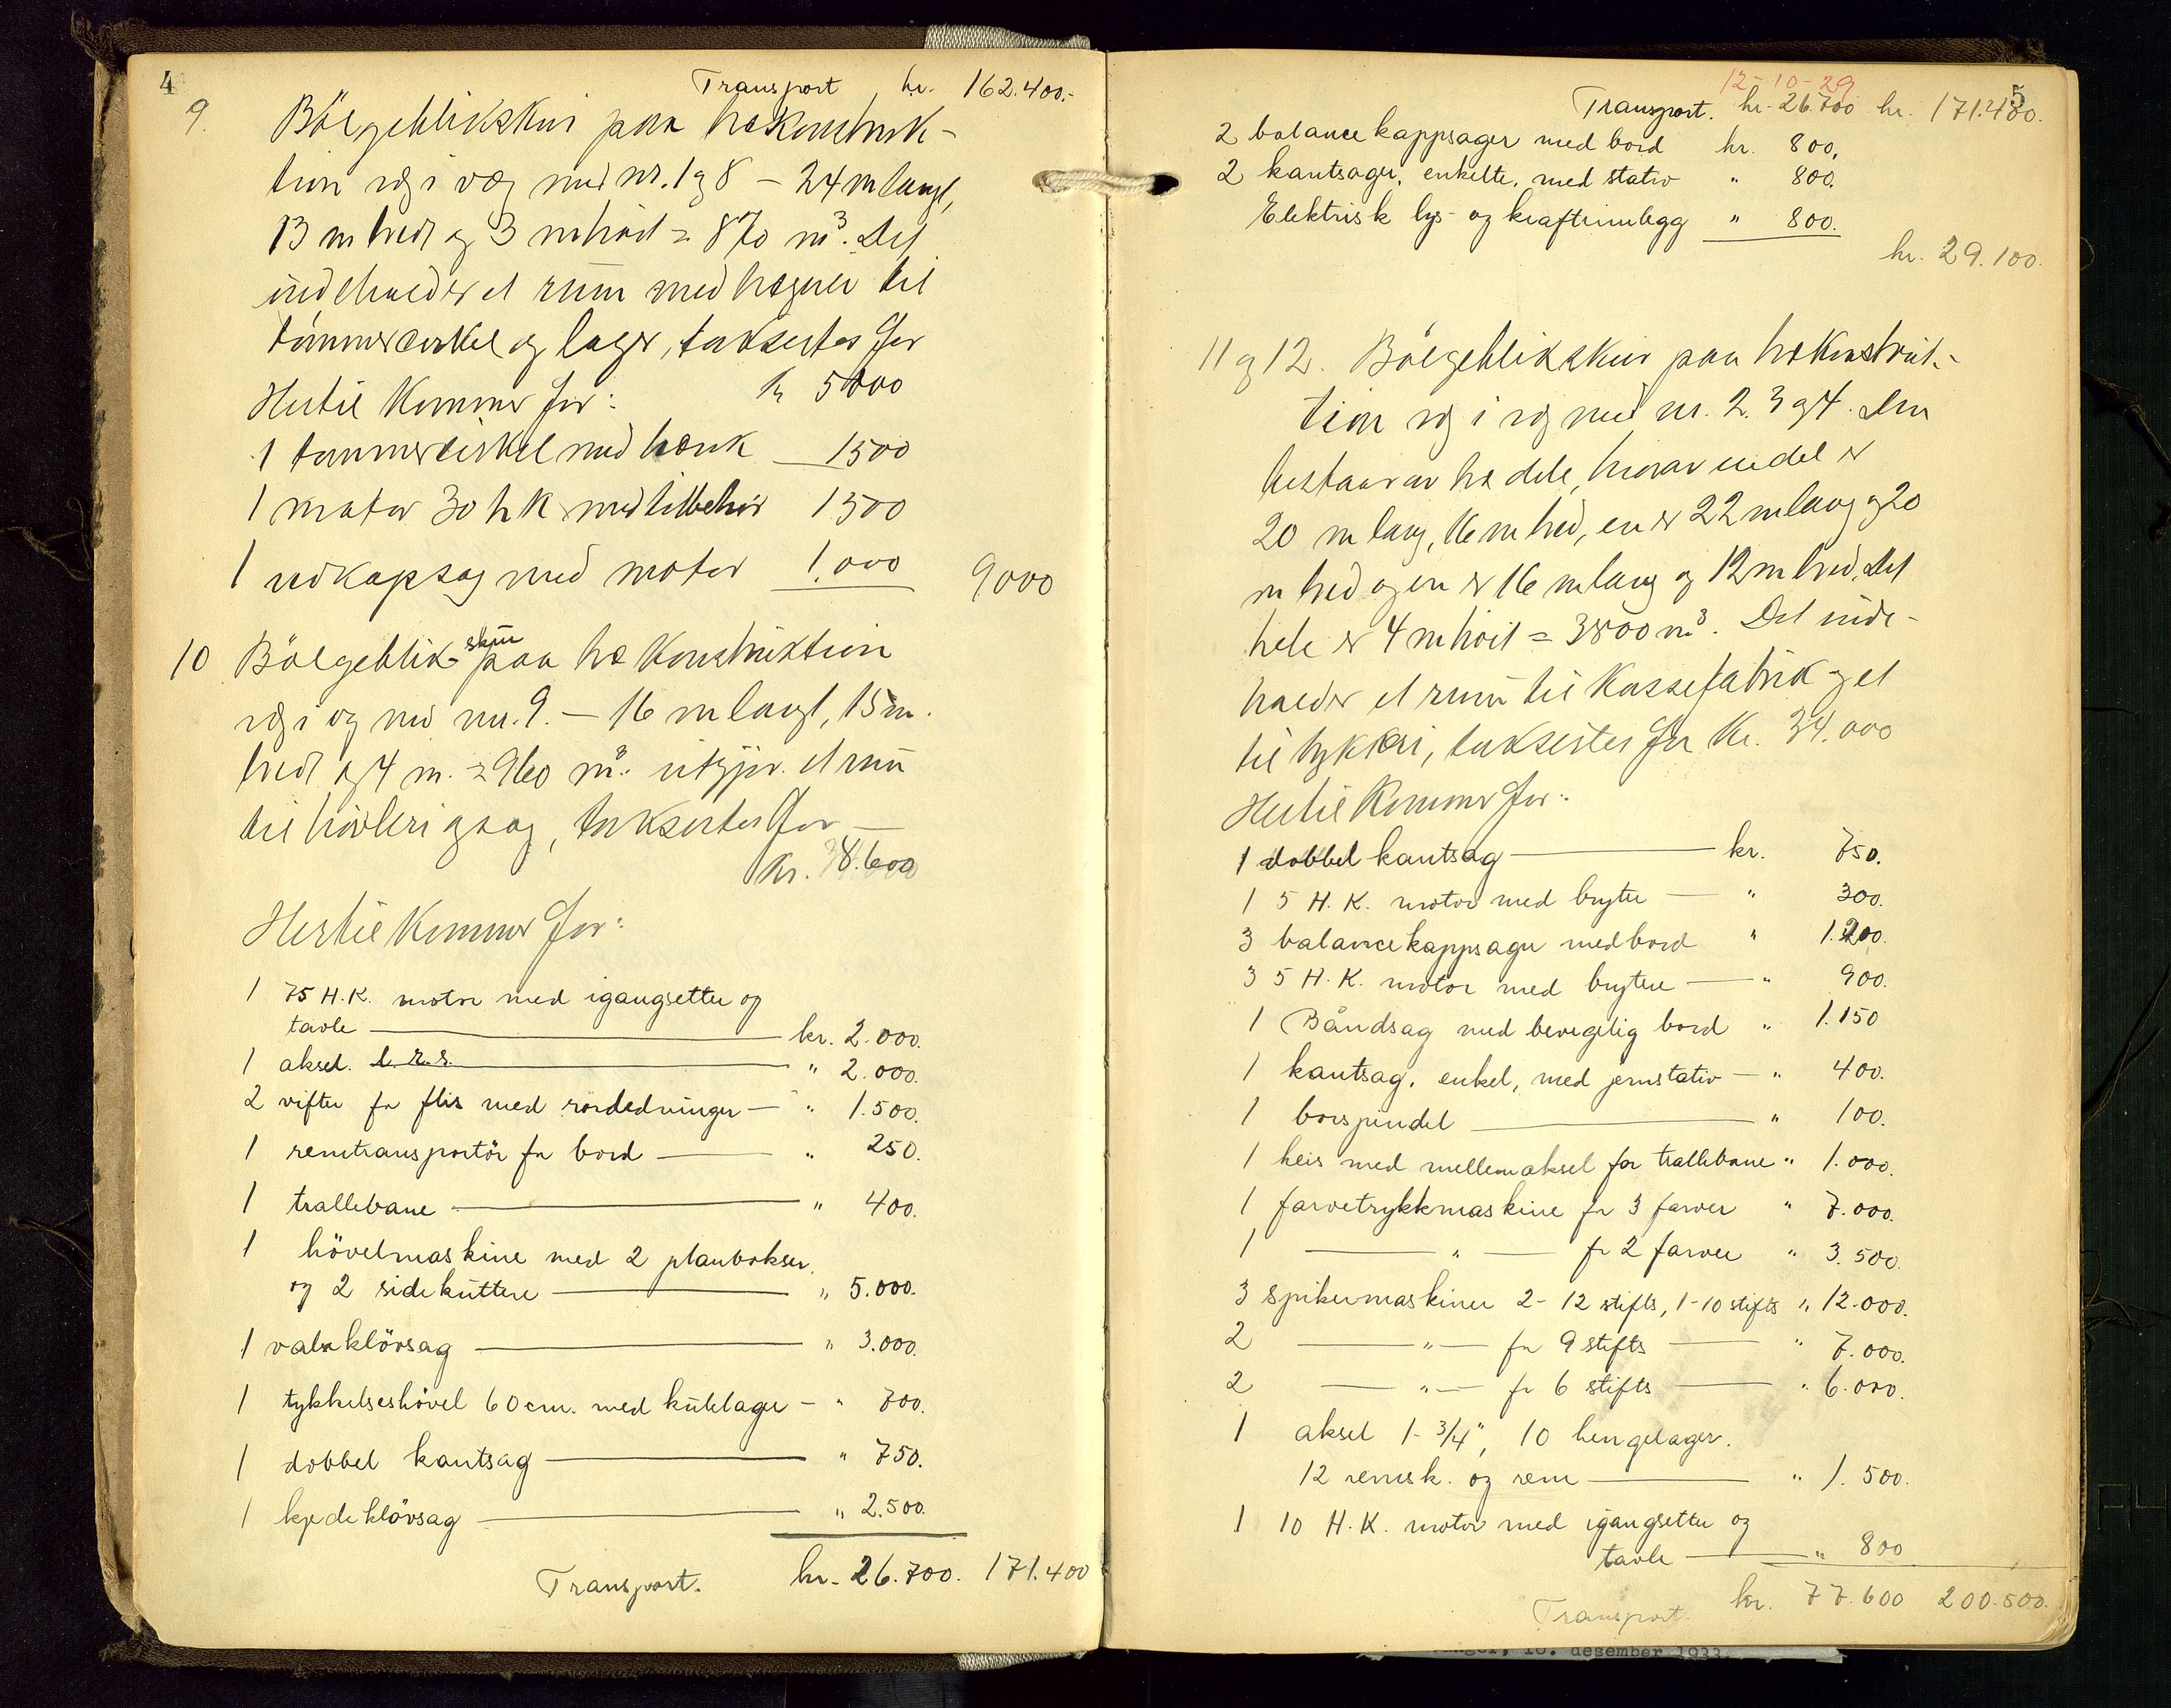 4
Transport kr. 162.400.-
9. Bölgeblikskur paa trækonstruk-
tion og i væg med nr. 1 og 8 – 24 m langt,
13 m bredt og 3 m höit = 870 m³. Det
indeholder et rum med hægner til
tömmercirkel og lager, taksertes for
Hertil kommer for: kr 5000
1 tømmercirkel med bænk 1500
1 motor 30 h k med tilbehør 1500
1 vedkapsag med motor 1.000 9000
10 Bölgeblikskur paa træ konstruktion
og i væg med nr. 9. – 16 m langt, 15 m.
bredt og 4 m. = 960 m³. utgjør et rum
til høvleri og sag, taksertes for –
kr. 8.600
Hertil kommer for:
1 75 H.K. motor med igangsetter og
tavle kr. 2.000.
1 aksel. l. r. r. " 2.000.
2 vifter for flis med rørledninger – " 1.500.
1 remtransportör for bord " 250.
1 trallebane " 400.
1 hövelmaskine med 2 planbokser
og 2 sidekuttere " 5.000.
1 valseklövsag " 3.000.
1 tykkelseshövel 60 cm. med kulelager – " 700.
1 dobbel kantsag " 750.
1 kjedeklövsag " 2.500.
Transport. kr. 26.700. 171.400
12-10-29
5
Transport. kr. 26.700 kr. 171.400.
2 balance kappsager med bord kr. 800.
2 kantsager, enkelte, med stativ " 800.
Elektrisk lys- og kraftinnlegg " 800.
kr. 29.100.
11 og 12. Bölgeblikskur paa trækonstruk-
tion og i væg med nr. 2. 3 og 4. Den
bestaar av tre dele, hvorav en del er
20 m lang, 16 m bred, en er 22 m lang og 20
m bred og en er 16 m lang og 12 m bred. Det
hele er 4 m höit = 3800 m³. Det inde-
holder et rum til kassefabrik og et
til trykkeri, taksertes for kr. 34.000
Hertil kommer for:
1 dobbel kantsag kr. 750.
1 5 H.K. motor med bryter " 300.
3 balancekappsager med bord " 1.200.
3 5 H.K. motor med brytere " 900.
1 Båndsag med bevegelig bord " 1.150
1 kantsag, enkel, med jernstativ – " 400.
1 borspindel " 100.
1 heis med mellemaksel for trallebane " 1.000.
1 farvetrykkmaskine for 3 farver " 7.000.
1 — " — for 2 farver " 3.500.
3 spikermaskiner 2- 12 stifts, 1-10 stifts " 12.000.
2 — " — for 9 stifts " 7.000.
2 — " — for 6 stifts " 6.000.
1 aksel 1-3/4", 10 hengelager.
12 remsk. og rem " 1.500.
1 10 H.K. motor med igangsetter og
tavle " 800
Transport. kr. 77.600 200.500.
desember 1933